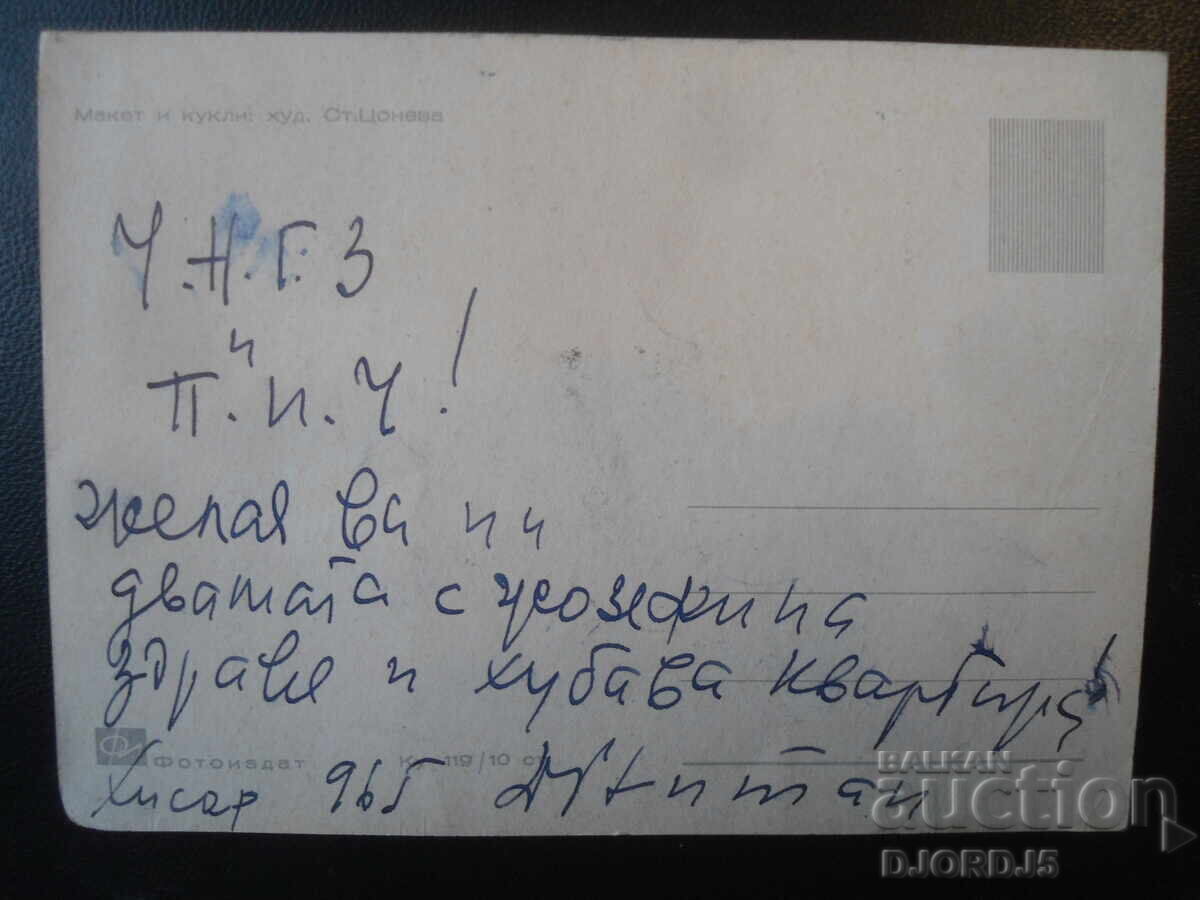 Макет и кукли: худ. Ст.Цонева
Ч.Н.Г.З
и
П.И.Ч!
желая ви ни
двамата с
здраве и хубава квартира!
Фотоиздат К. 119/10 ст.
Хисар 965
BALKAN
auction
DJORDJ5